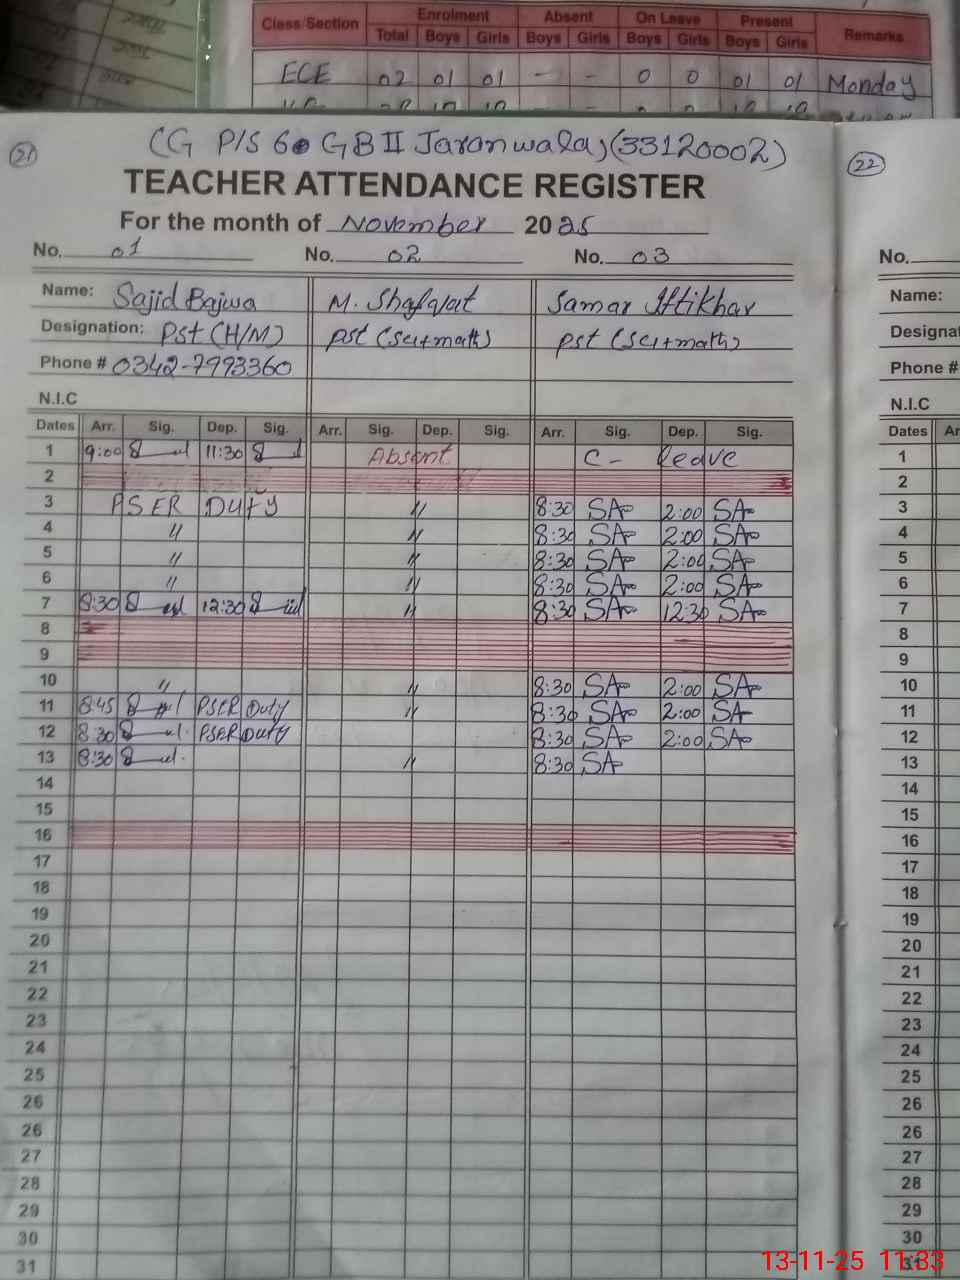 Class/Section Enrolment Absent On Leave Present Remarks
Total Boys Girls Boys Girls Boys Girls Boys Girls
ECE 02 01 01 - - 0 0 01 01 Monday
21
CG P/S 60 GB II Jaranwala, (33120002)
22
TEACHER ATTENDANCE REGISTER
For the month of November 2025
No. 01 No. 02 No. 03 No.
Name: Sajid Bajwa M. Shafqat Samar Iftikhar Name:
Designation: Pst (H/M) pst (Sci+math) pst (Sci+math)
Phone # 0342-7993360 Phone #
N.I.C N.I.C
Dates Arr. Sig. Dep. Sig. Arr. Sig. Dep. Sig. Arr. Sig. Dep. Sig. Dates
1 9:00 11:30 Absent C- leave 1
2 2
3 PSER Duty " 8:30 SA 2:00 SA 3
4 " " 8:30 SA 2:00 SA 4
5 " " 8:30 SA 2:00 SA 5
6 " " 8:30 SA 2:00 SA 6
7 8:30 12:30 " 8:30 SA 12:30 SA 7
8 8
9 9
10 " " 8:30 SA 2:00 SA 10
11 8:45 PSER Duty " 8:30 SA 2:00 SA 11
12 8:30 PSER Duty 8:30 SA 2:00 SA 12
13 8:30 " 8:30 SA 13
14 14
15 15
16 16
17 17
18 18
19 19
20 20
21 21
22 22
23 23
24 24
25 25
26 26
26 26
27 27
28 28
29 29
30 30
31 31
13-11-25 11:33